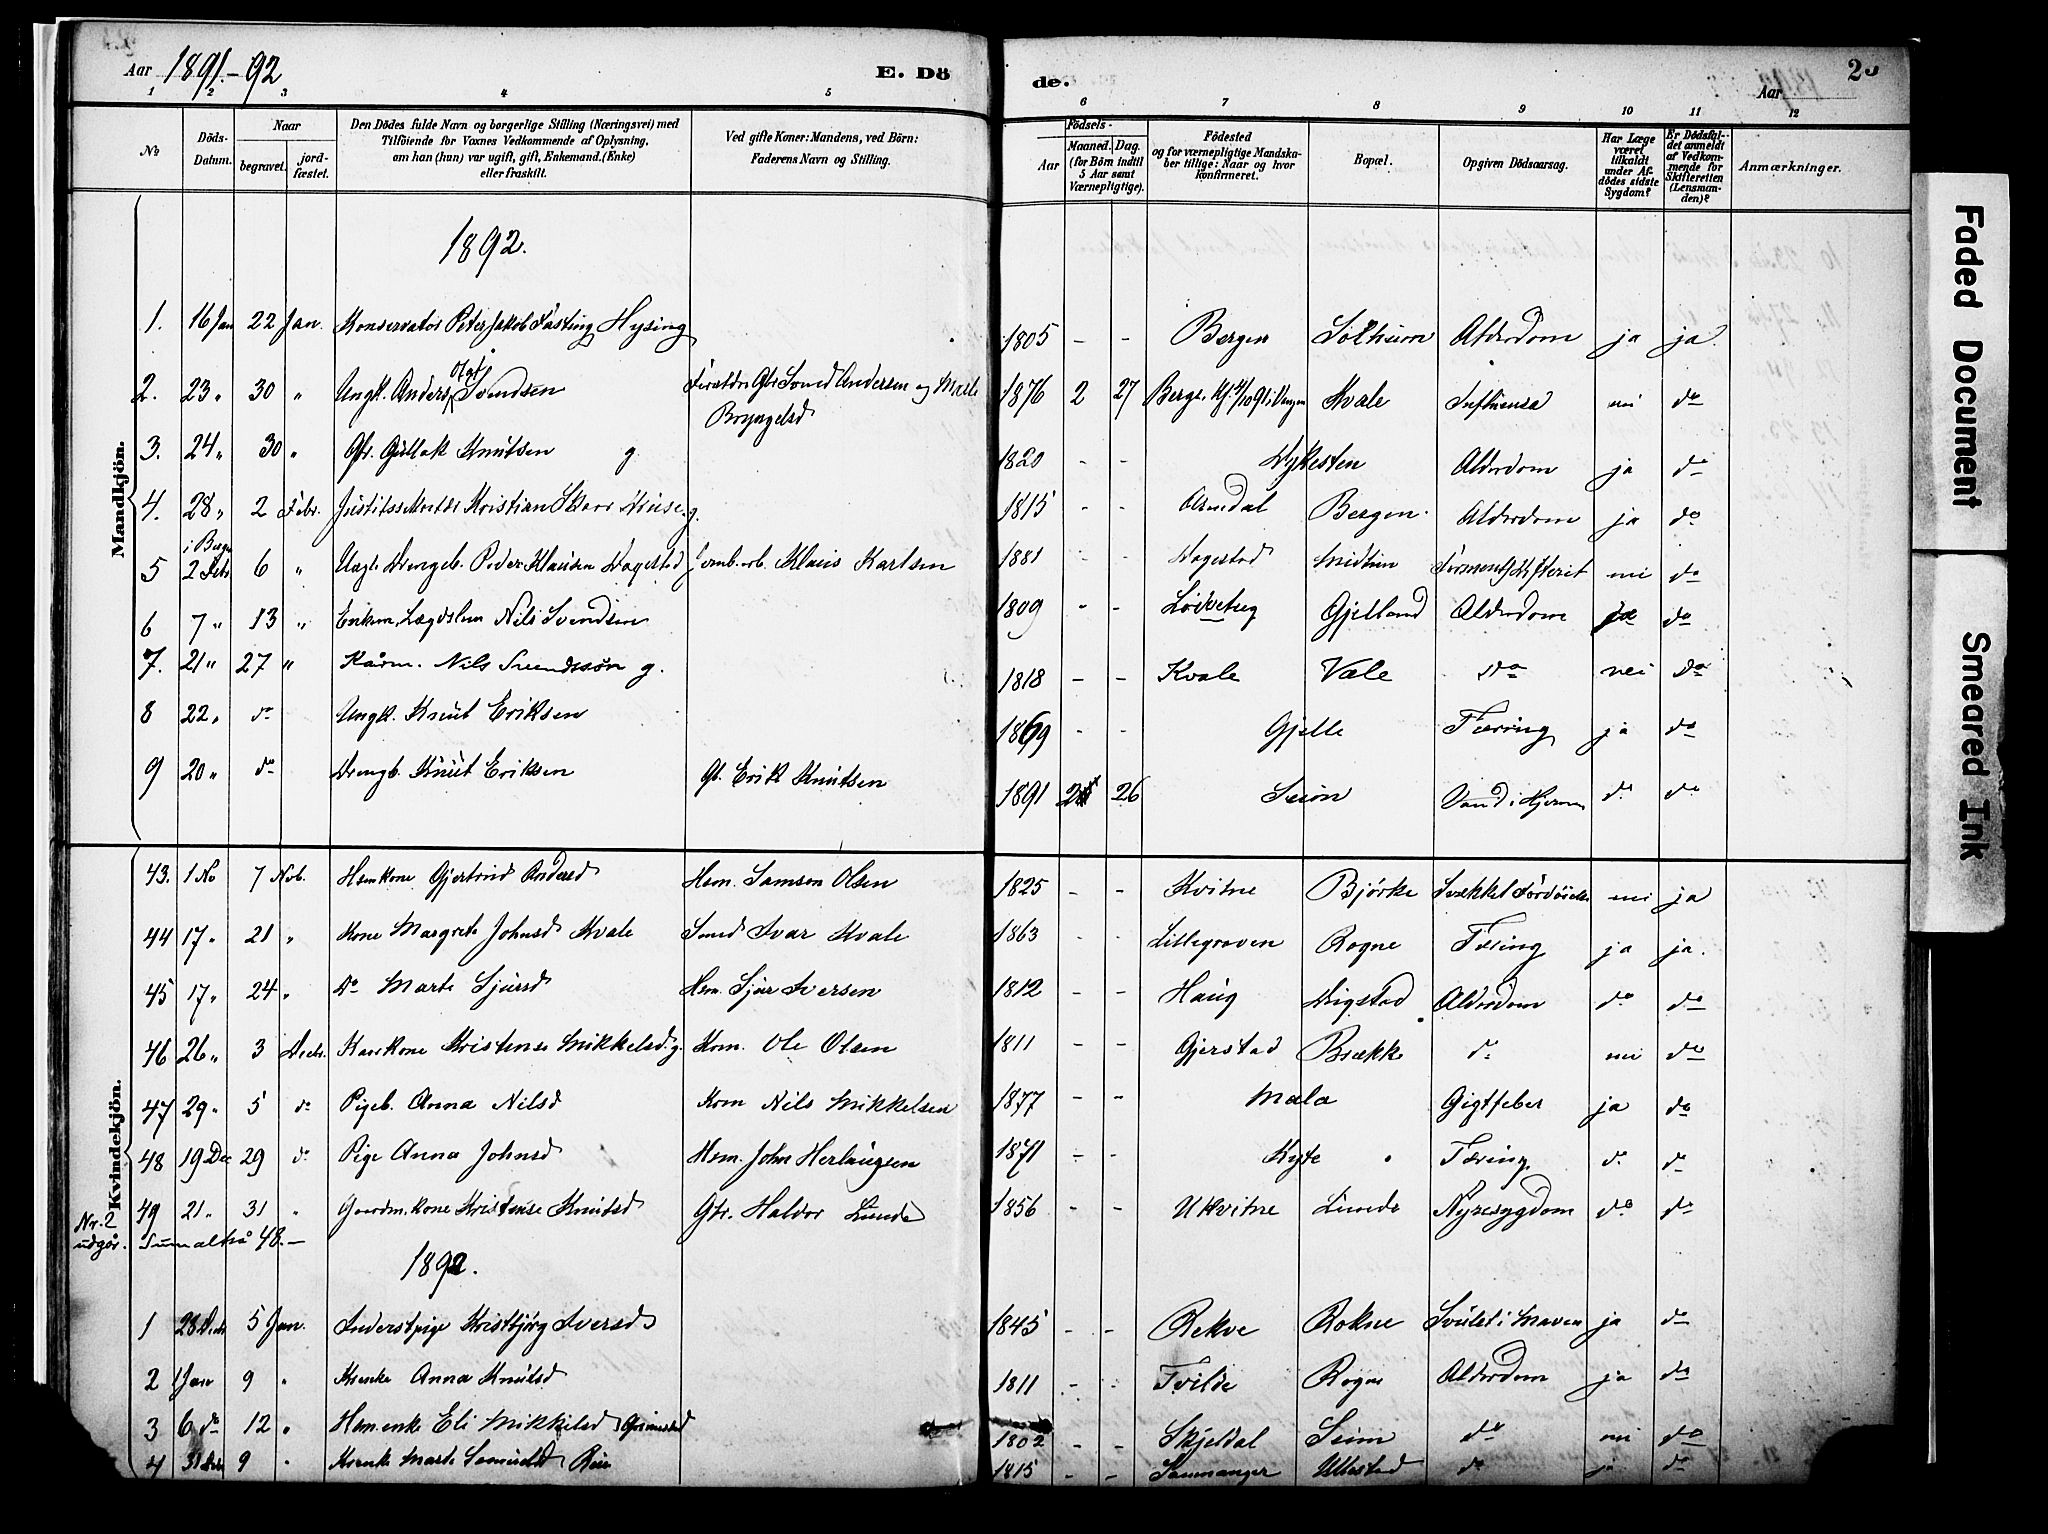 Aar 1891.-92
E. Dö
de.
Aar
1 2 3 4 5 6 7 8 9 10 11 12
№
Döds-Datum.
Naar
begravet.
jord-fæstet.
Den Dödes fulde Navn og borgerlige Stilling (Næringsvei) med
Tilföiende for Voxnes Vedkommende af Oplysning,
om han (hun) var ugift, gift, Enkemand, (Enke)
eller fraskilt.
Ved gifte Koner: Mandens, ved Börn:
Faderens Navn og Stilling.
Födsels-
Aar
Maaned. Dag.
(for Börn indtil
5 Aar samt
Værnepligtige).
Födested
og for værnepligtige Mandska-
ber tillige: Naar og hvor
konfirmeret.
Bopæl.
Opgiven Dödsaarsag.
Har Læge
været
tilkaldt
under Af-
dödes sidste
Sygdom?
Er Dödsfal-
det anmeldt
af Vedkom-
mende for
Skifteretten
(Lensman-
den)?
Anmærkninger.
Mandkjön.
1892.
1. 16 Jan 22 Jan. Konservator Peter Jakob Fasting Hysing 1805 - - Bergen Solheim Alderdom ja ja.
2. 23 " 30 " Ungk. Anders Olai Svendsen 1876 2 27 Hvale Influensa nei do
3. 24 " 30 " Gbr. Gullak Knutsen g 1820 - - Dykesten Alderdom ja do
4. 28 " 2 Febr. Kristian g. 1815 - - Arendal Bergen. Alderdom ja do
i Berg.
5 2 Feb 6 " Peder Klausen Dagestad Klaus Karlsen 1881 - - Dagestad Midtun nei do
6 7 " 13 " Enkem. Lægdslem Nils Svendsen 1809 - - Gjelland Alderdom ja do
7. 21 " 27 " Kårm. Nils Svendssön g. 1818 - - Kvale Væle do nei do
8 22 " do Ungk. Knut Eriksen 1869 - - Gjelle Tæring ja do
9 20 " do Drengb. Knut Eriksen Gb. Erik Knutsen 1891 26 Seim Vand i Hjernen do do
Kvindekjön.
43. 1 No 7 Nvb. Hsmkone Gjertrud Andersd Hsm. Samson Olsen 1825 - - Kvitne Björke nei ja
44 17 " 21 " Kone Margrete Johnsd Kvale Smed Ivar Kvale 1863 - - Lillegraven Rogne Tæring ja ja.
45 17 " 24 " Do Marte Sjursd Hsm. Sjur Iversen 1812 - - Haug Alderdom do do
46 26 " 3 Decbr. Kaarkone Kristense Mikkelsd. g. Kom. Ole Olsen 1811 - - Gjerstad Brække do nei do
47 29 " 5 do Pigeb. Anna Nilsd Kom Nils Mikkelsen 1877 - - Mala Gigtfeber ja do
48 19 Dec 29 do Pige Anna Johnsd Hsm. John Herlaugsen 1871 - - Kyte Tæring do do
49 21 " 31 " Gaardm. kone Kristense Knutsd Gbr. Haldor Lunde 1856 - - Ukvitne Lunde Nyresygdom do do
Nr. 2 udgår. Sum altså 48. -
1892.
1 28 Decbr 5 Jan. Inderstpige Kristbjørg Iversd 1845 - - Rekve Rokne Svulst i Maven ja do
2 1 Jan 9 " Anna Knutsd 1811 - - Tvilde Rogne Alderdom ja do
3 6 do 12 " Hsm. enke Eli Mikkelsd Grimestad 1802 - - Skjeldal Seim do nei do
4 31 Dec 9 " Marte 1815 - - Samnanger Ullestad do ja do
Faded Document
Smeared Ink